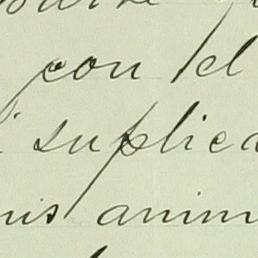 con el
suplica
mis anim